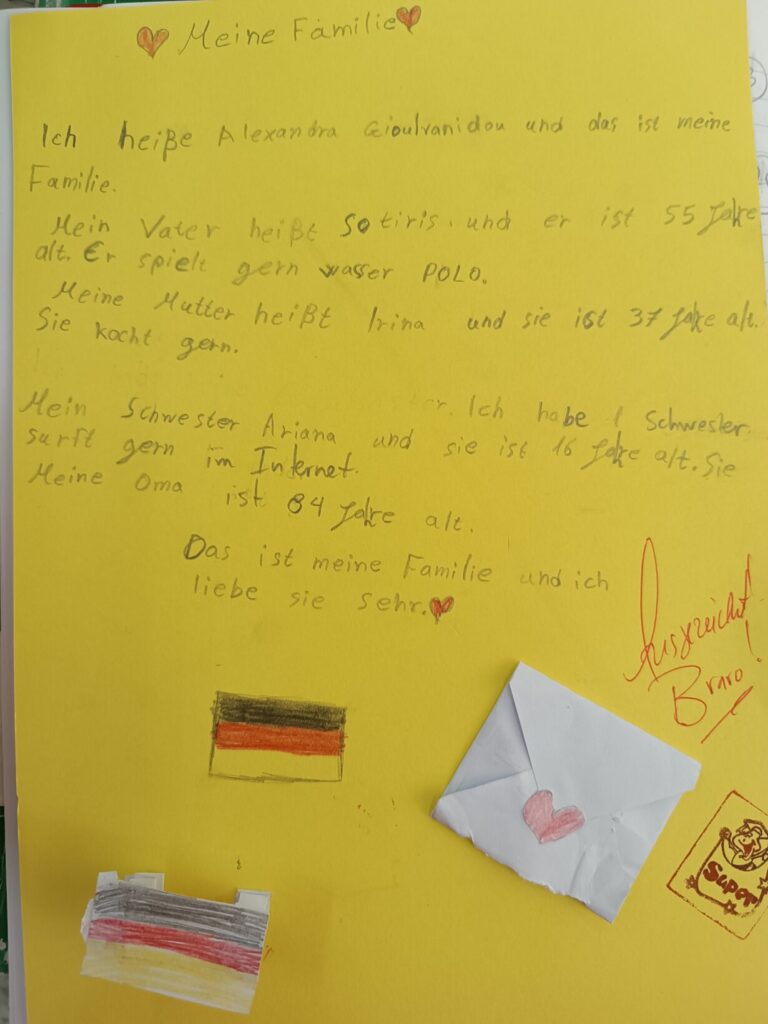 Meine Familie
Ich heiße Alexandra Gioulvanidou und das ist meine
Familie.
Mein Vater heißt Sotiris. und er ist 55 Jahre
alt. Er spielt gern wasser POLO.
Meine Mutter heißt Irina und sie ist 37 Jahre alt.
Sie kocht gern.
Ich habe 1 Schwester.
Mein Schwester Ariana und sie ist 16 Jahre alt. Sie
surft gern im Internet.
Meine Oma ist 84 Jahre alt.
Das ist meine Familie und ich
liebe sie sehr.
Bravo!
Super